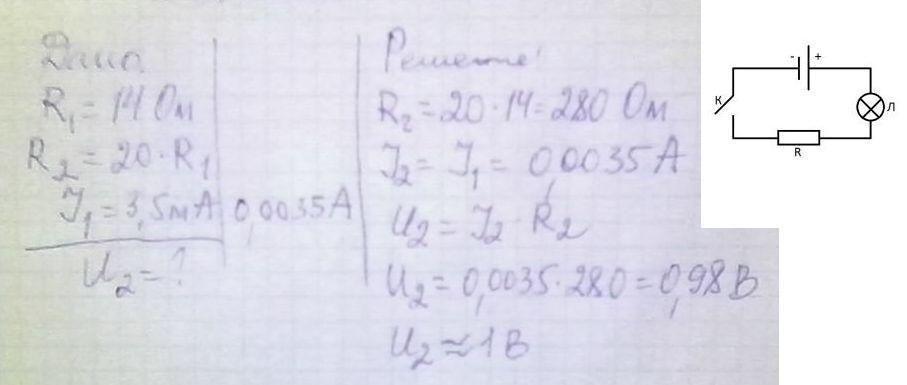 Дано
R₁ = 14 Ом
R₂ = 20·R₁
I₁ = 3,5мА 0,0035А
U₂ = ?
Решение:
R₂ = 20·14 = 280 Ом
I₂ = I₁ = 0,0035А
U₂ = I₂·R₂
U₂ = 0,0035·280 = 0,98 В
U₂ ≈ 1 В
- +
К
Л
R